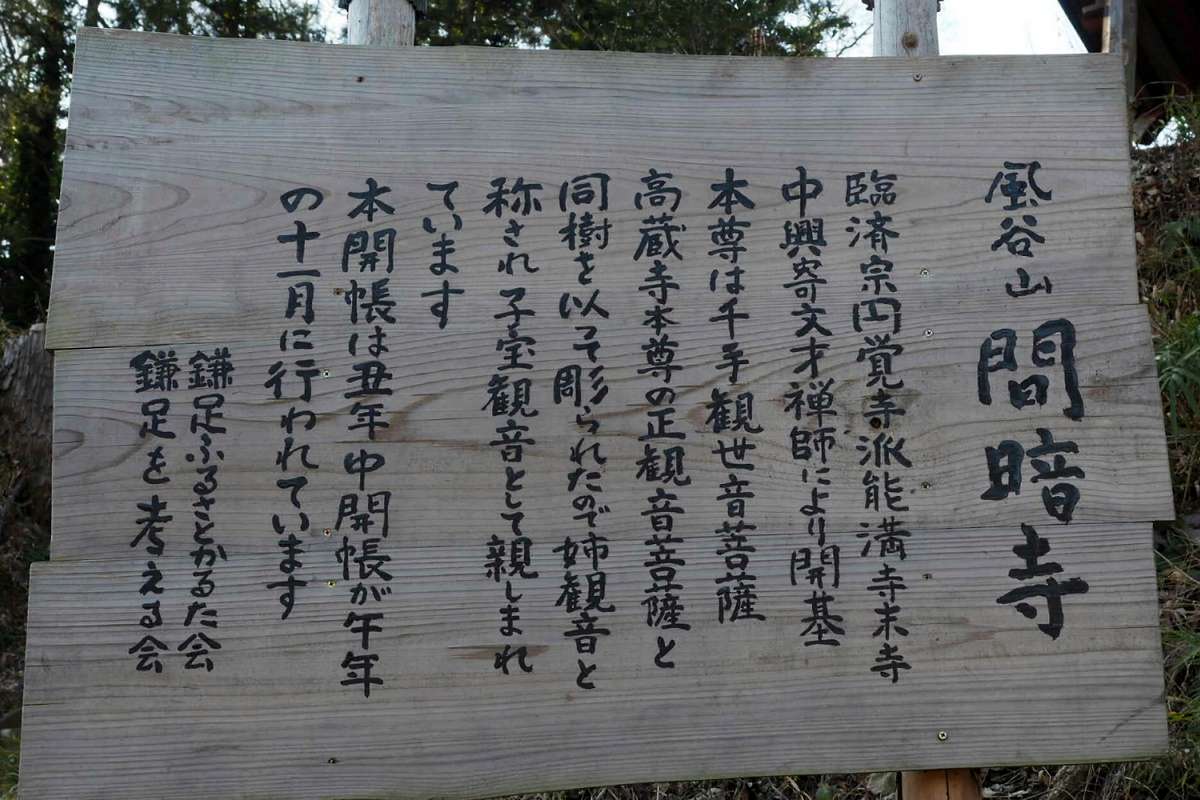 風谷山 間暗寺
臨済宗円覚寺派能満寺末寺
中興寄文才禅師により開基
本尊は千手観世音菩薩
高蔵寺本尊の正観音菩薩と
同樹を以って彫られたので姉観音と
称され子宝観音として親しまれ
ています
本開帳は丑年中開帳が午年
の十一月に行われています
鎌足ふるさとかるた会
鎌足を考える会